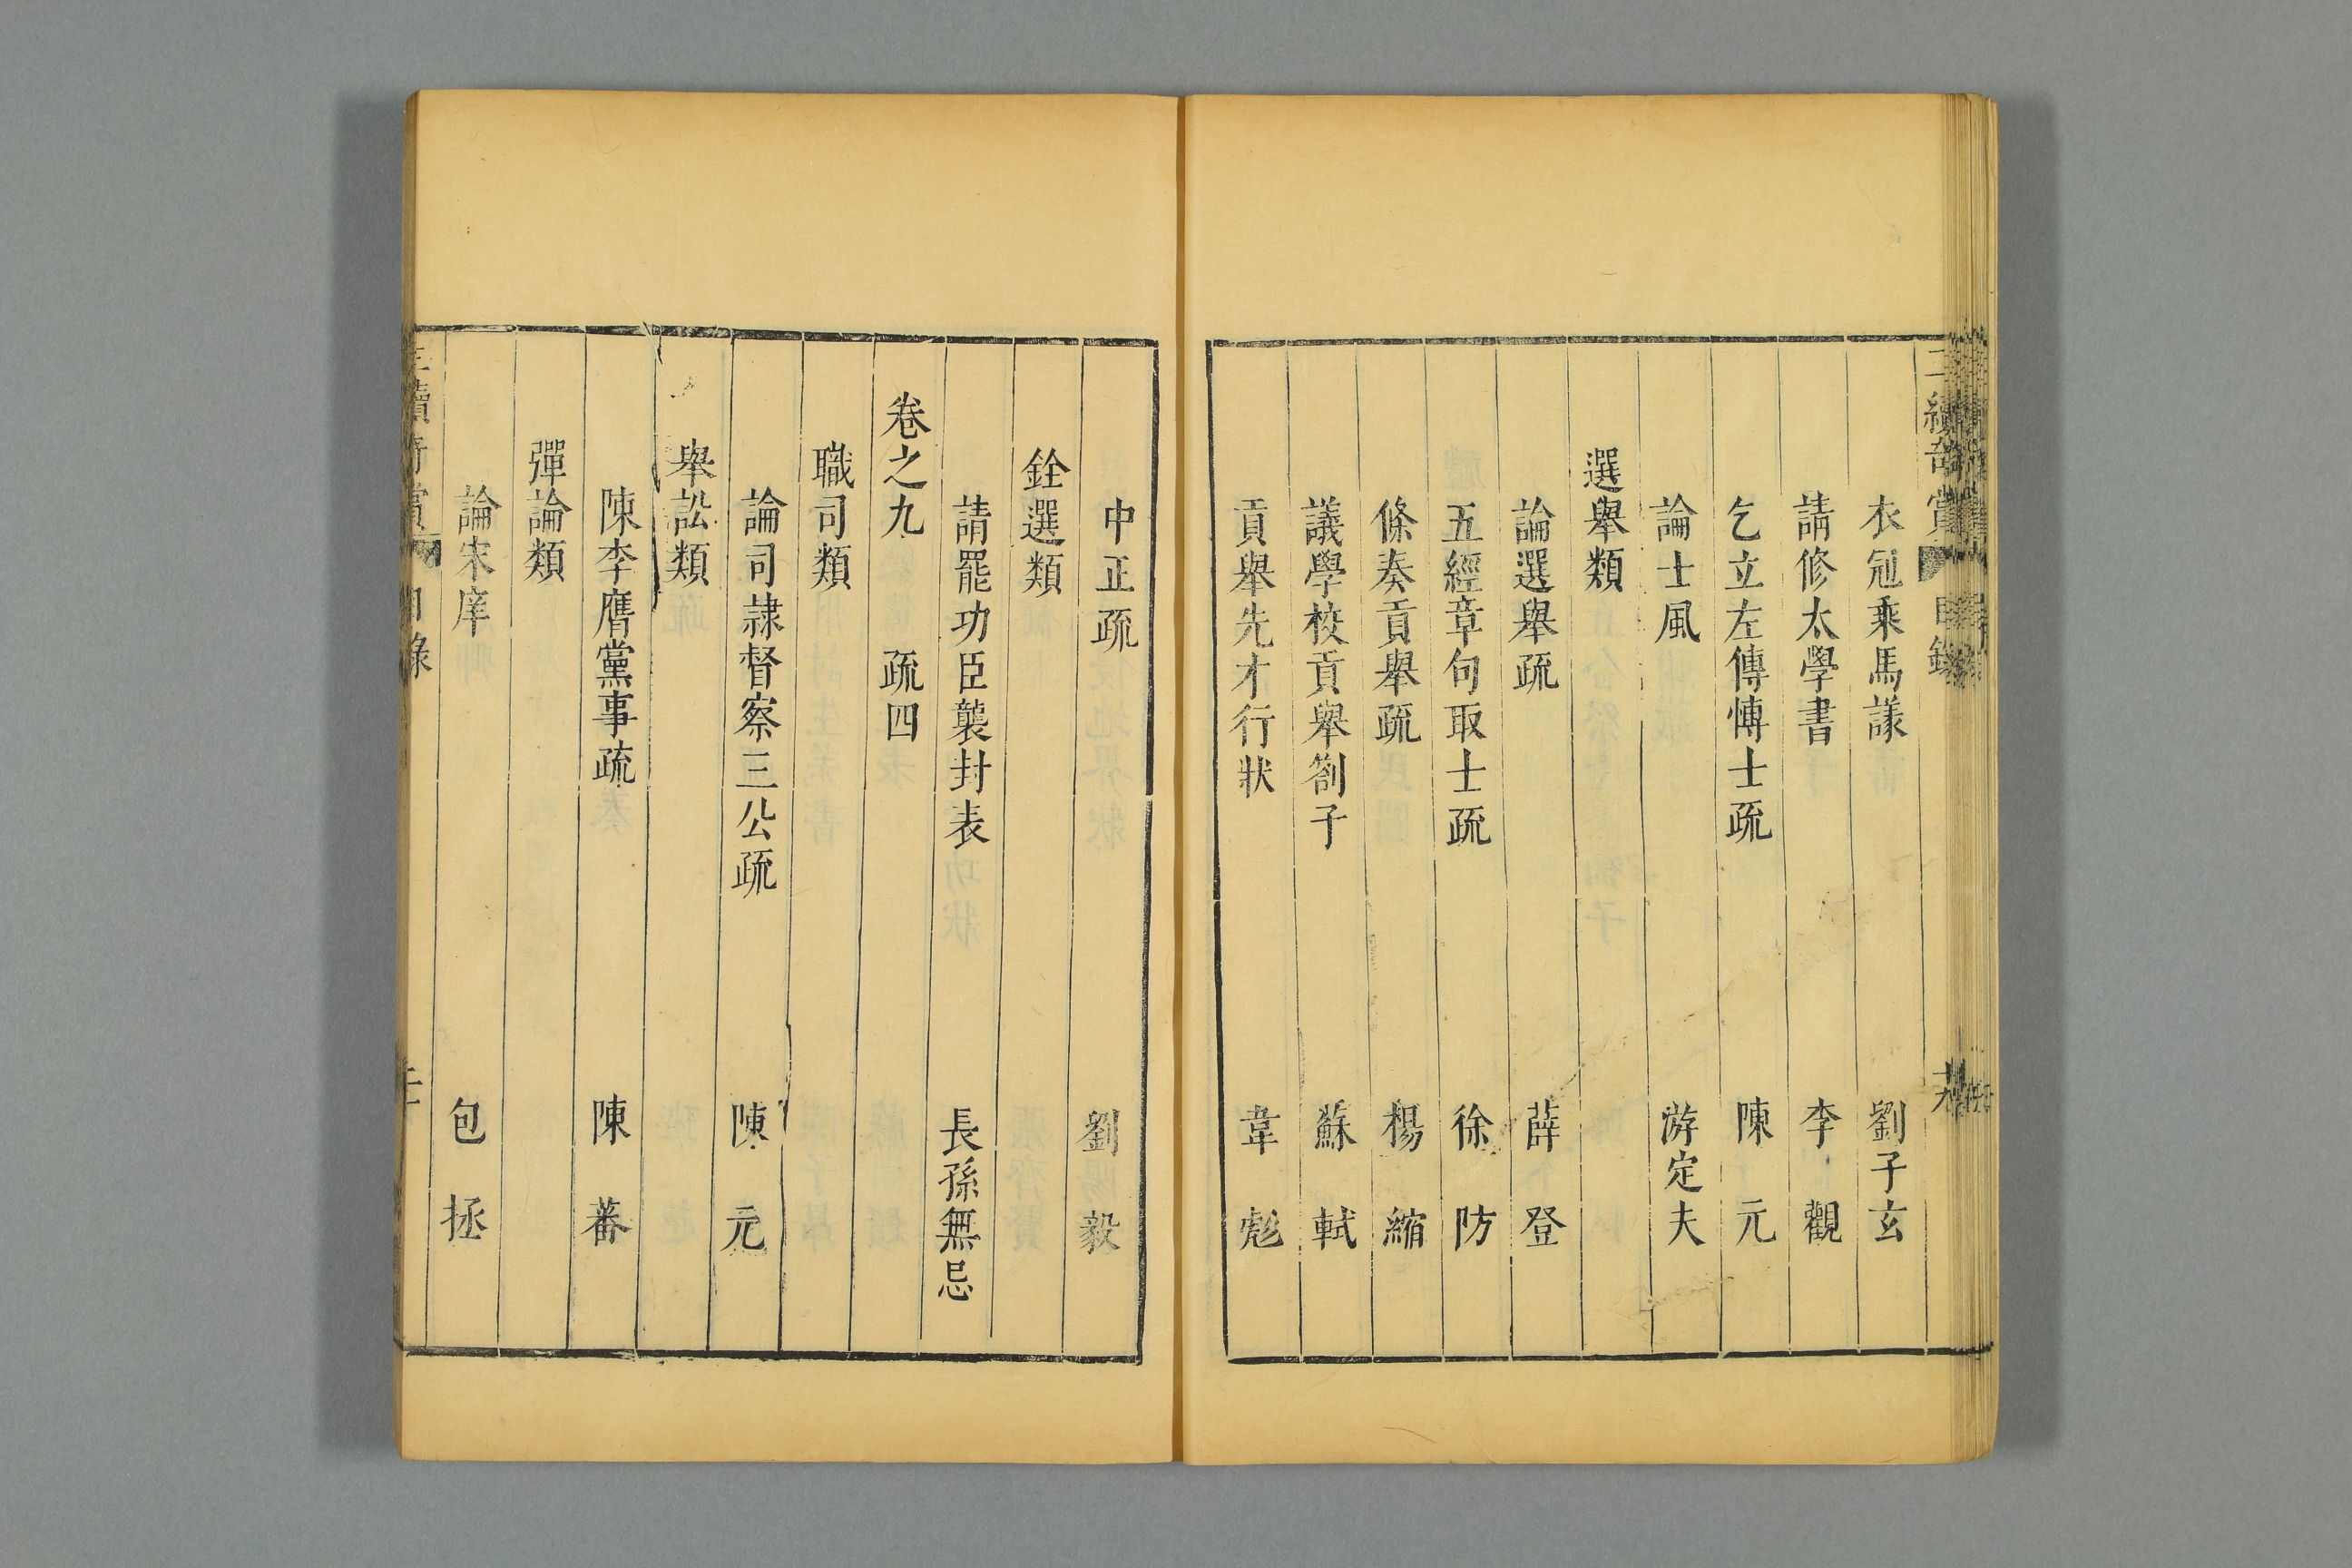 衣冠乘馬議 劉子玄
請修太學書 李觀
乞立左傳博士疏 陳元
論士風 游定夫
選舉類
論選舉疏 薛登
五經章句取士疏 徐防
條奏貢舉疏 楊綰
議學校貢舉劄子 蘇軾
貢舉先才行狀 韋彪
中正疏 劉陽毅
銓選類
請罷功臣襲封表 長孫無忌
卷之九 疏四
職司類
論司隸督察三公疏 陳元
舉訟類
陳李膺黨事疏 陳蕃
彈論類
論宋庠 包拯